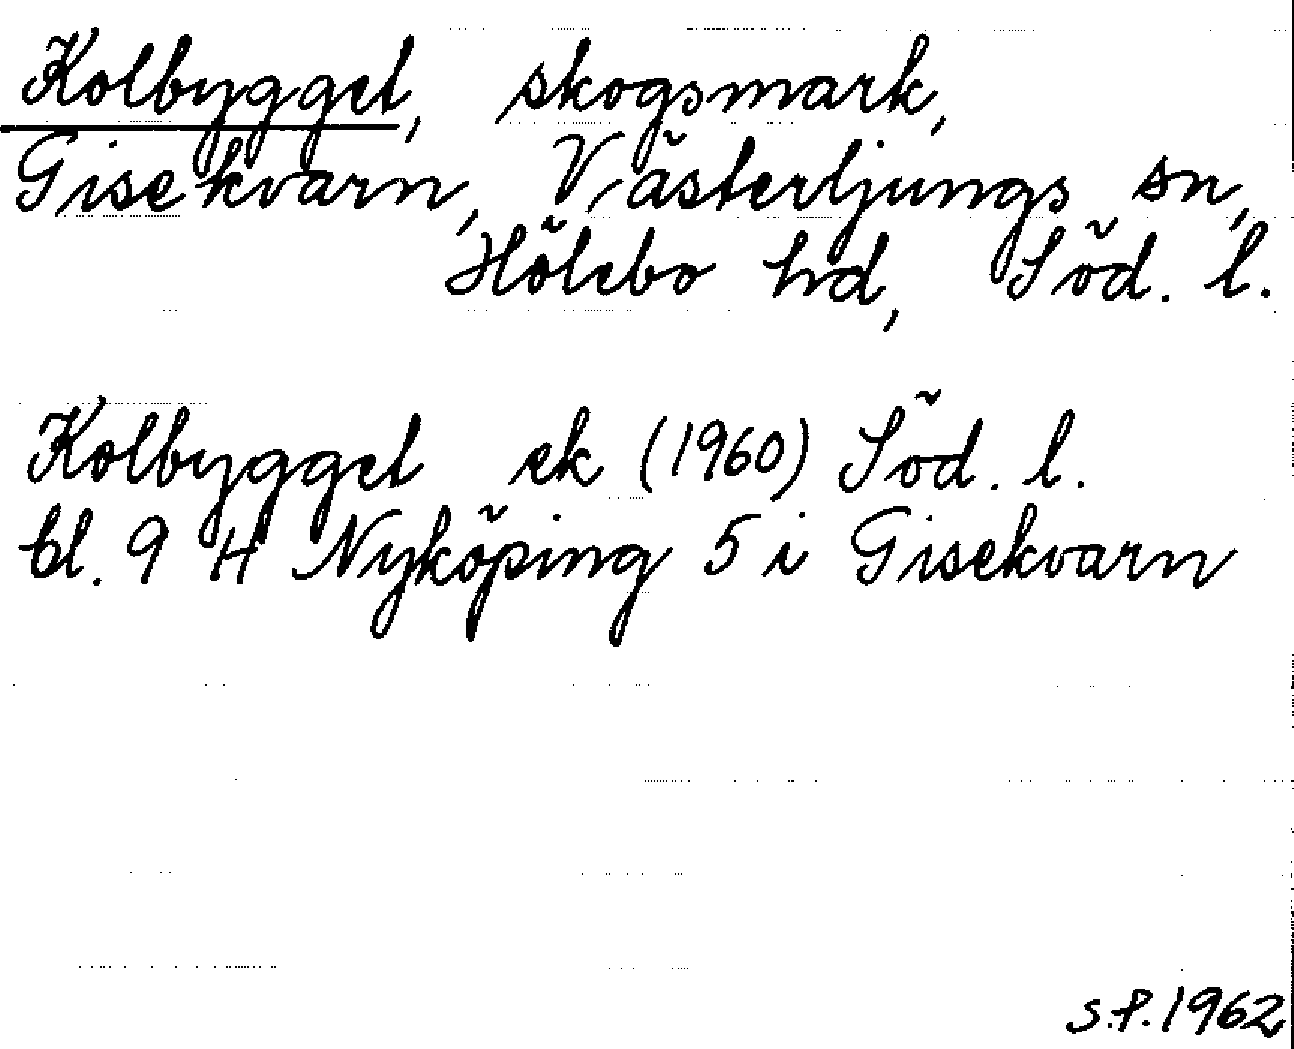 Kolbygget, skogsmark,
Gisekvarn, Västerljungs sn,
Hölebo hd, Söd. l.
Kolbygget ek (1960) Söd. l.
bl. 9 H Nyköping 5 i Gisekvarn
S.P. 1962